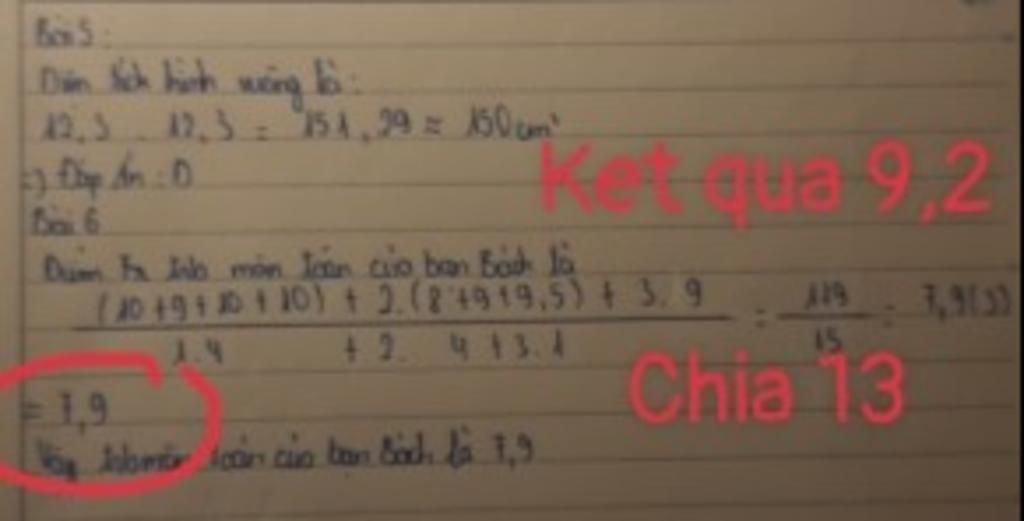 Bài 5:
Diện tích hình vuông là:
12,3 . 12,3 = 151,29 ≈ 150 cm²
=) Đáp Án: D
Ket qua 9,2
Bài 6
Điểm tbmôn toán của bạn Bách là
(10+9+10+10) + 2.(8+9+9,5) + 3.9
1.4 + 2. 4 + 3.1
= 119
15
= 7,9(3)
Chia 13
= 7,9
Vậy tbmôn toán của bạn Bách là 7,9